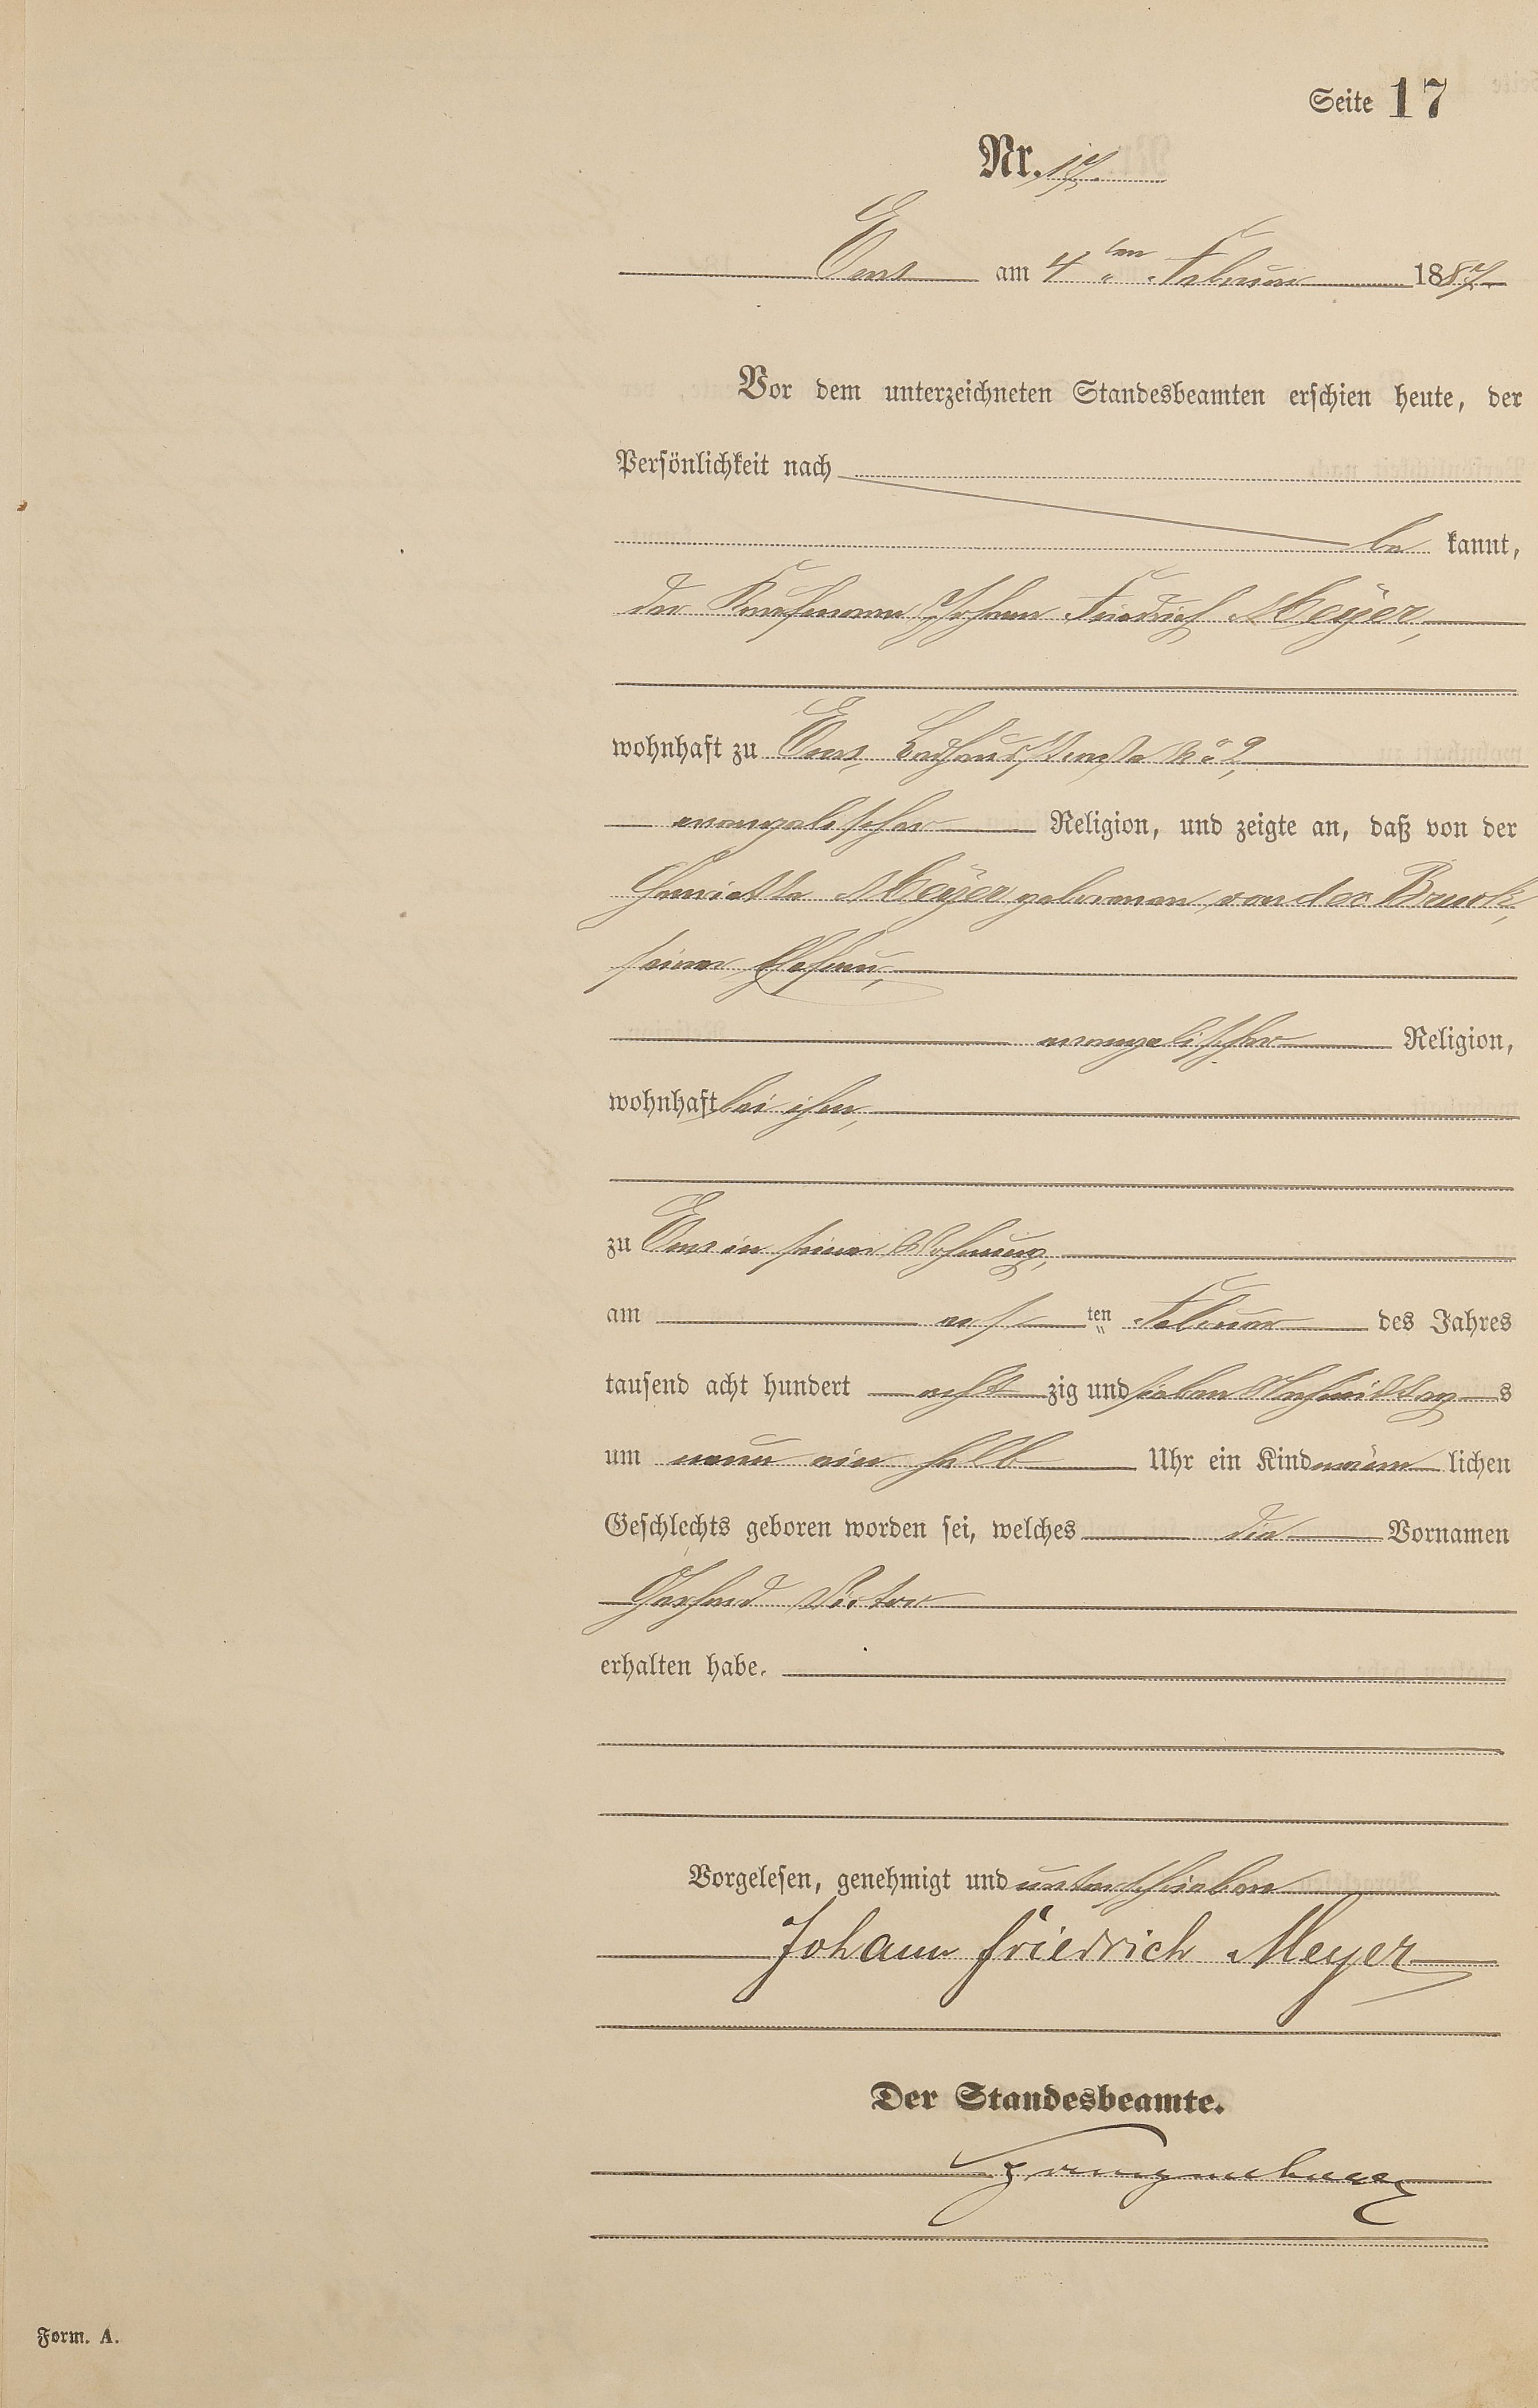 Seite 17
Nr. 17.
Ems am 4 ten Februar 1887
Vor dem unterzeichneten Standesbeamten erschien heute, der
Persönlichkeit nach
be kannt,
der Kaufmann Johann Friedrich Meÿer,
wohnhaft zu Ems,
evangelischer Religion, und zeigte an, daß von der
Henriette Meÿer geborenen von der Bruck,
seiner Ehefrau,
evangelischer Religion,
wohnhaft bei ihm,
zu Ems in seiner Wohnung,
am ersten Februar des Jahres
tausend acht hundert acht zig und sieben Nachmittags
um neun ein halb Uhr ein Kind männ lichen
Geschlechts geboren worden sei, welches die Vornamen
Gerhard Victor
erhalten habe.
Vorgelesen, genehmigt und unterschrieben
Johann Friedrich Meyer
Der Standesbeamte.
Form. A.